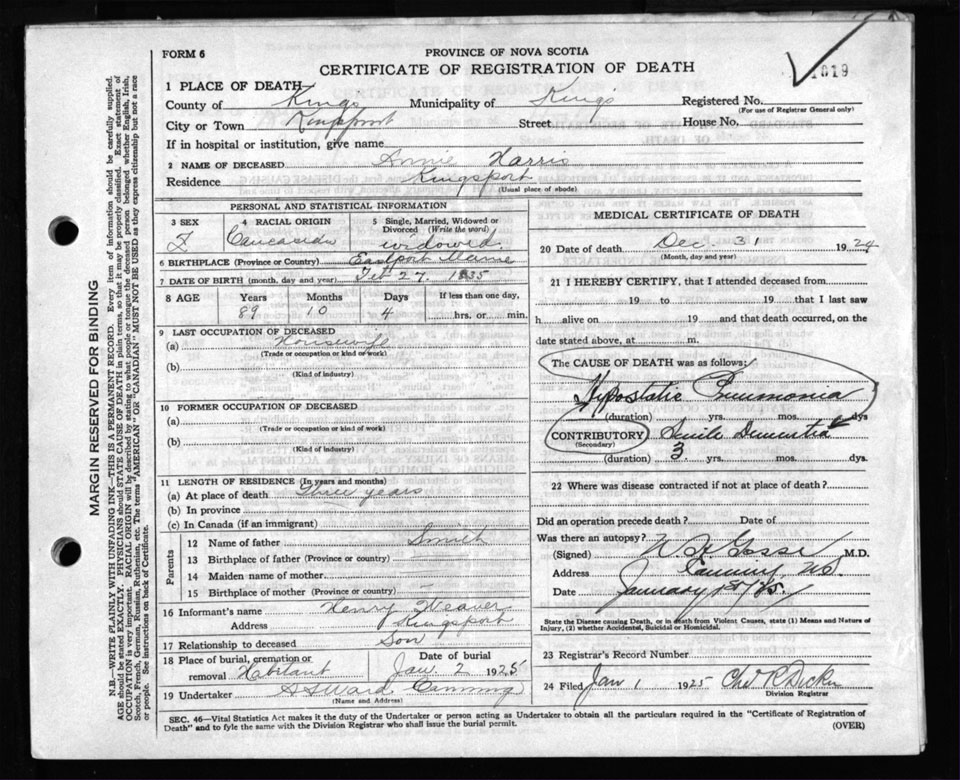 FORM 6
PROVINCE OF NOVA SCOTIA
CERTIFICATE OF REGISTRATION OF DEATH
1019
1 PLACE OF DEATH
County of Kings Municipality of Kings Registered No.
(For use of Registrar General only)
City or Town Kingsport Street House No.
If in hospital or institution, give name
2 NAME OF DECEASED Annie Harris
Residence Kingsport
(Usual place of abode)
PERSONAL AND STATISTICAL INFORMATION
3 SEX 4 RACIAL ORIGIN 5 Single, Married, Widowed or Divorced (Write the word)
F Caucasian widowed.
6 BIRTHPLACE (Province or Country) Eastport Maine
7 DATE OF BIRTH (month, day and year) Feb 27. 1835
8 AGE Years Months Days If less than one day,
89 10 4 hrs. or min.
9 LAST OCCUPATION OF DECEASED
(a) Housewife
(Trade or occupation or kind of work)
(b)
(Kind of industry)
10 FORMER OCCUPATION OF DECEASED
(a)
(Trade or occupation or kind of work)
(b)
(Kind of industry)
11 LENGTH OF RESIDENCE (In years and months)
(a) At place of death Three years
(b) In province
(c) In Canada (if an immigrant)
Parents
12 Name of father Smith
13 Birthplace of father (Province or country)
14 Maiden name of mother
15 Birthplace of mother (Province or country)
16 Informant's name Henry Weaver
Address Kingsport
17 Relationship to deceased Son
18 Place of burial, cremation or removal Habitant Date of burial Jan. 2 1925
19 Undertaker
(Name and Address)
MEDICAL CERTIFICATE OF DEATH
20 Date of death Dec. 31 1924
(Month, day and year)
21 I HEREBY CERTIFY, that I attended deceased from
19 to 19 that I last saw
h alive on 19 and that death occurred, on the
date stated above, at m.
The CAUSE OF DEATH was as follows:
Hypostatic Pneumonia
(duration) yrs. mos. dys
CONTRIBUTORY Senile Dementia
(Secondary)
(duration) 3 yrs. mos. dys.
22 Where was disease contracted if not at place of death?
Did an operation precede death? Date of
Was there an autopsy?
(Signed) M.D.
Address Canning NS.
Date January 1st/25.
State the Disease Causing Death, or in death from Violent Causes, state (1) Means and Nature of
Injury, (2) whether Accidental, Suicidal or Homicidal.
23 Registrar's Record Number
24 Filed Jan 1 1925
Division Registrar
SEC. 46—Vital Statistics Act makes it the duty of the Undertaker or person acting as Undertaker to obtain all the particulars required in the "Certificate of Registration of
Death" and to fyle the same with the Division Registrar who shall issue the burial permit.
(OVER)
MARGIN RESERVED FOR BINDING
N.B.—WRITE PLAINLY WITH UNFADING INK—THIS IS A PERMANENT RECORD. Every item of information should be carefully supplied.
AGE should be stated EXACTLY. PHYSICIANS should STATE CAUSE OF DEATH in plain terms, so that it may be properly classified. Exact statement of
OCCUPATION is very important. RACIAL ORIGIN will be described by stating to what people or tongue the deceased person belonged whether English, Irish,
Scotch, French, German, Russian, Ruthenian, etc. The terms "AMERICAN" OR "CANADIAN" MUST NOT BE USED as they express citizenship but not a race
or people. See instructions on back of Certificate.